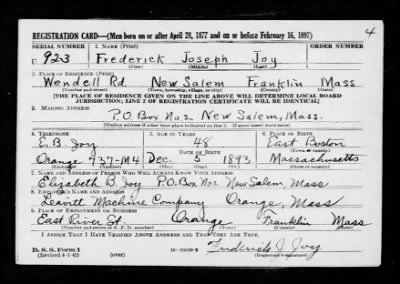 4
REGISTRATION CARD—(Men born on or after April 28, 1877 and on or before February 16, 1897)
SERIAL NUMBER 1. NAME (Print) ORDER NUMBER
U 923 Frederick Joseph Joy
(First) (Middle) (Last)
2. PLACE OF RESIDENCE (Print)
Wendell Rd. New Salem Franklin Mass
(Number and street) (Town, township, village, or city) (County) (State)
[THE PLACE OF RESIDENCE GIVEN ON THE LINE ABOVE WILL DETERMINE LOCAL BOARD
JURISDICTION; LINE 2 OF REGISTRATION CERTIFICATE WILL BE IDENTICAL]
3. MAILING ADDRESS
P.O. Box No. 2 New Salem, Mass.
[Mailing address if other than place indicated on line 2. If same insert word same]
4. TELEPHONE 5. AGE IN YEARS 6. PLACE OF BIRTH
E. B. Joy 48 East Boston
DATE OF BIRTH (Town or county)
Orange 937-M4 Dec. 5 1893 Massachusetts
(Exchange) (Number) (Mo.) (Day) (Yr.) (State or country)
7. NAME AND ADDRESS OF PERSON WHO WILL ALWAYS KNOW YOUR ADDRESS
Elizabeth B. Joy P.O. Box No 2 New Salem, Mass
8. EMPLOYER'S NAME AND ADDRESS
Leavitt Machine Company Orange, Mass
9. PLACE OF EMPLOYMENT OR BUSINESS
East River St. Orange Franklin Mass
(Number and street or R. F. D. number) (Town) (County) (State)
I AFFIRM THAT I HAVE VERIFIED ABOVE ANSWERS AND THAT THEY ARE TRUE.
D. S. S. Form 1
(Revised 4-1-42) (over) Frederick J. Joy
(Registrant's signature)